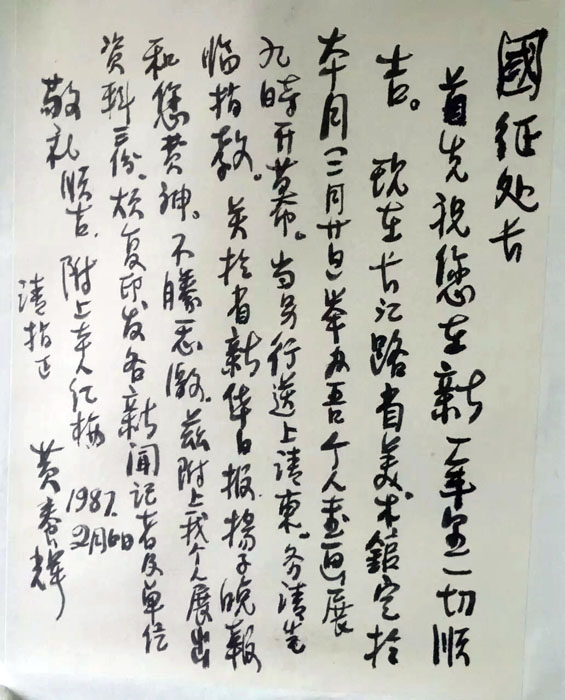 國征处长
首先祝您在新一年里一切顺
吉。现在长江路省美术館定於
本月(二月廿日)举办吾个人画展
九時开幕。当另行送上请柬。务请光
临指教。关於省新华日报,揚子晚報
和您费神。不勝感激。兹附上我个人展出
资料三份,烦复印发各新闻记者及单位
敬礼 顺吉. 附上本人红梅
请指正
1987.
2月6日
黄養辉